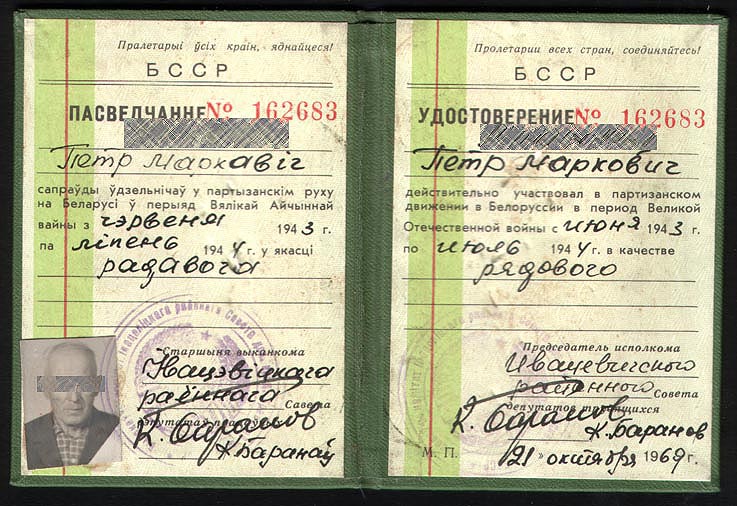 Пралетарыі ўсіх краін, яднайцеся!
БССР
ПАСВЕДЧАННЕ № 162683
Пётр Маркавіч
сапраўды ўдзельнічаў у партызанскім руху
на Беларусі ў перыяд Вялікай Айчыннай
вайны з чэрвеня 1943 г.
па ліпень 1944 г. у якасці
радавога
Старшыня выканкома
Івацэвіцкага
раённага Савета
дэпутатаў
К. Баранаў
Пролетарии всех стран, соединяйтесь!
БССР
УДОСТОВЕРЕНИЕ № 162683
Петр Маркович
действительно участвовал в партизанском
движении в Белоруссии в период Великой
Отечественной войны с июня 1943 г.
по июль 1944 г. в качестве
рядового
Председатель исполкома
Ивацевичского
районного Совета
депутатов трудящихся
К. Баранов
М. П. «21» октября 1969 г.